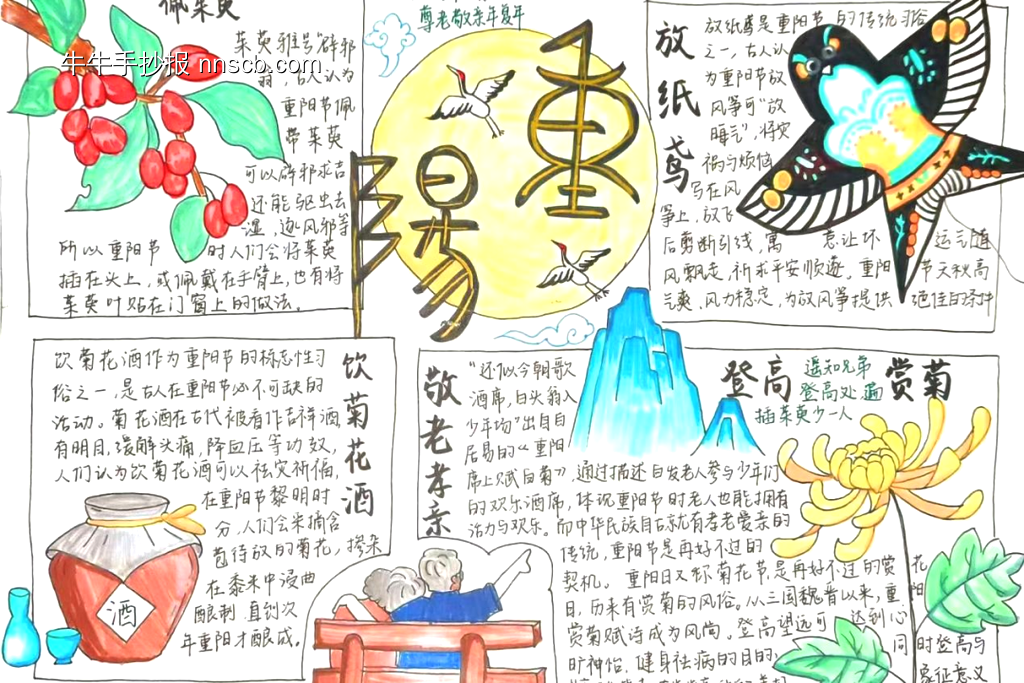 佩茱萸
茱萸雅号"辟邪
翁",古人认为
重阳节佩
带茱萸
可以辟邪求吉
还能驱虫去
湿,逐风邪等
所以重阳节 时人们会将茱萸
插在头上,或佩戴在手臂上,也有将
茱萸叶贴在门窗上的做法。
牛牛手抄报 nnscb.com
尊老敬亲年复年
重
陽
放纸鸢
放纸鸢是重阳节的传统习俗
之一,古人认
为重阳节放
风筝可"放
晦气",将灾
祸与烦恼
写在风
筝上,放飞
后剪断引线,寓 意让坏 运气随
风飘走,祈求平安顺遂。重阳 节天秋高
气爽,风力稳定,为放风筝提供 绝佳的条件
饮菊花酒
饮菊花酒作为重阳节的标志性习
俗之一,是古人在重阳节必不可缺的
活动。菊花酒在古代被看作吉祥酒
有明目,缓解头痛,降血压等功效,
人们认为饮菊花酒可以祛灾祈福,
在重阳节黎明时
分,人们会采摘含
苞待放的菊花,掺杂
在黍米中浸曲
酿制 直到次
年重阳才酿成。
酒
敬老孝亲
"还似今朝歌
酒席,白头翁入
少年场"出自白
居易的《重阳
席上赋白菊》,通过描述白发老人参与少年们
的欢乐酒席,体现重阳节时老人也能拥有
活力与欢乐。而中华民族自古就有孝老爱亲的
传统,重阳节是再好不过的
契机。
登高 赏菊
遥知兄弟
登高处,遍
插茱萸少一人
重阳日又称菊花节是再好不过的赏 花
日,历来有赏菊的风俗。从三国魏晋以来,重 阳
赏菊赋诗成为风尚。登高望远可 达到心
旷神怡,健身祛病的目的, 同 时登高与
象征意义